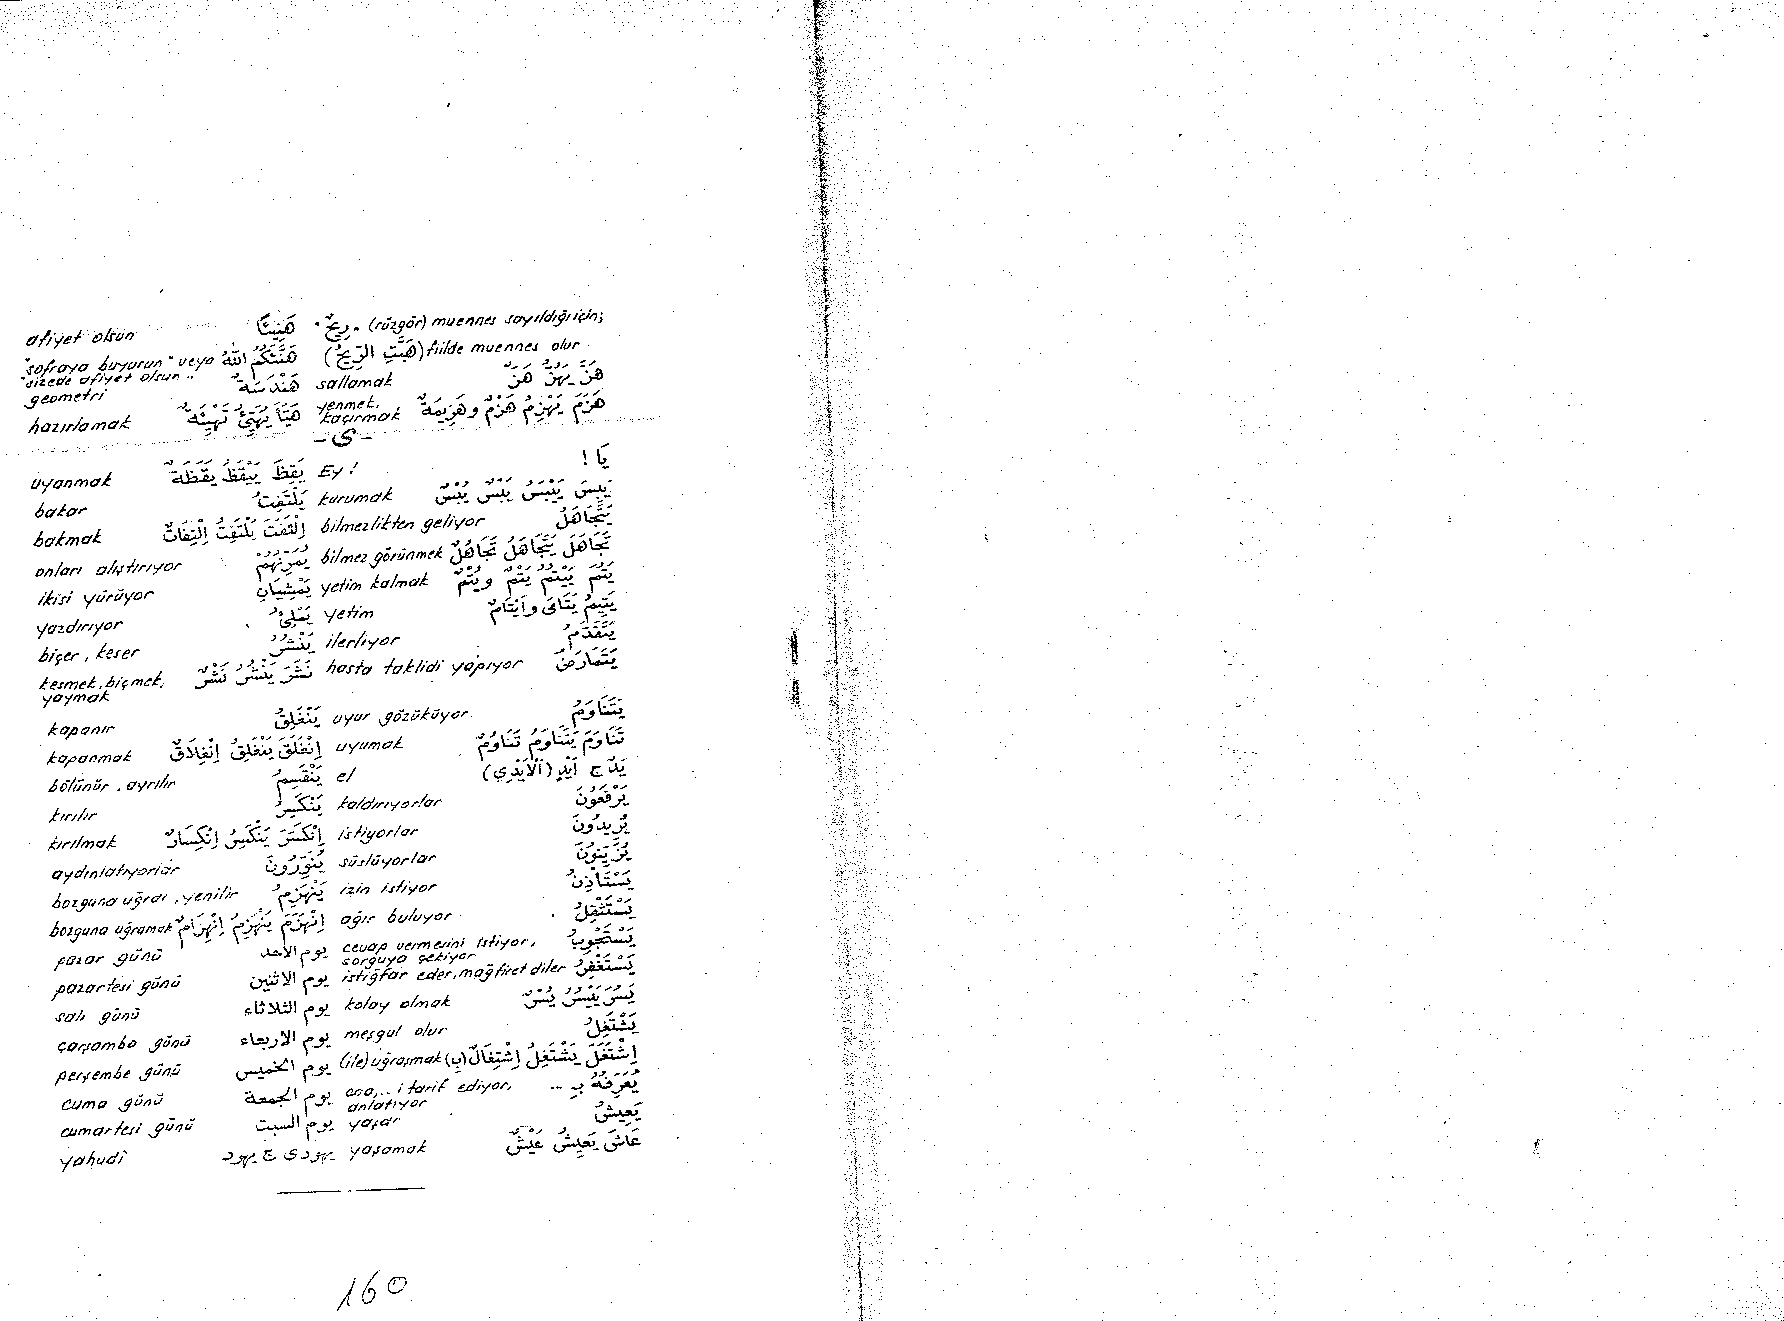 afiyet olsun هَنِيئًا " رِيحٌ " (rüzgâr) muennes sayıldığı için;
"sofraya buyurun" veya هَنَّئَكُمُ اللهُ (هَبَّتِ الرِّيحُ) fiilde muennes olur
"sizede afiyet olsun"
geometri هَنْدَسَةٌ sallamak هَزَّ يَهُزُّ هَزٌّ
hazırlamak هَيَّأَ يُهَيِّئُ تَهْيِئَةٌ yenmek, kaçırmak هَزَمَ يَهْزِمُ هَزْمٌ وهَزِيمَةٌ
-ى-
uyanmak يَقِظَ يَيْقَظُ يَقَظَةٌ Ey! يَا !
bakar يَلْتَفِتُ kurumak يَبِسَ يَيْبَسُ يَبْسٌ يُبْسٌ
bakmak اِلْتَفَتَ يَلْتَفِتُ اِلْتِفَاتٌ bilmezlikten geliyor يَتَجَاهَلُ
onları alıştırıyor يُمَرِّنُهُمْ bilmez görünmek تَجَاهَلَ يَتَجَاهَلُ تَجَاهُلٌ
ikisi yürüyor يَمْشِيَانِ yetim kalmak يَتُمَ يَيْتُمُ يَتْمٌ ويُتْمٌ
yazdırıyor يُمْلِي yetim يَتِيمٌ يَتَامَى وأَيْتَامٌ
biçer, keser يَنْشُرُ ilerliyor يَتَقَدَّمُ
kesmek, biçmek, yaymak نَشَرَ يَنْشُرُ نَشْرٌ hasta taklidi yapıyor يَتَمَارَضُ
kapanır يَنْغَلِقُ uyur gözüküyor يَتَنَاوَمُ
kapanmak اِنْغَلَقَ يَنْغَلِقُ اِنْغِلَاقٌ uyumak تَنَاوَمَ يَتَنَاوَمُ تَنَاوُمٌ
bölünür, ayrılır يَنْقَسِمُ el يَدٌ ج أَيْدٍ (اَلْأَيْدِي)
kırılır يَنْكَسِرُ kaldırıyorlar يَرْفَعُونَ
kırılmak اِنْكَسَرَ يَنْكَسِرُ اِنْكِسَارٌ istiyorlar يُرِيدُونَ
aydınlatıyorlar يُنَوِّرُونَ süslüyorlar يُزَيِّنُونَ
bozguna uğrar, yenilir يَنْهَزِمُ izin istiyor يَسْتَأْذِنُ
bozguna uğramak اِنْهَزَمَ يَنْهَزِمُ اِنْهِزَامٌ ağır buluyor يَسْتَثْقِلُ
pazar günü يوم الأحد cevap vermesini istiyor, sorguya çekiyor يَسْتَجْوِبُ
pazartesi günü يوم الاثنين istiğfar eder, mağfiret diler يَسْتَغْفِرُ
salı günü يوم الثلاثاء kolay olmak يَسُرَ يَيْسُرُ يُسْرٌ
çarşamba günü يوم الاربعاء meşgul olur يَشْتَغِلُ
perşembe günü يوم الخميس (ile) uğraşmak (بِ) اِشْتَغَلَ يَشْتَغِلُ اِشْتِغَالٌ
cuma günü يوم الجمعة ona,...i tarif ediyor, anlatıyor يُعَرِّفُهُ بِـ ...
cumartesi günü يوم السبت yaşar يَعِيشُ
yahudî يهودى ج يهود yaşamak عَاشَ يَعِيشُ عَيْشٌ
160